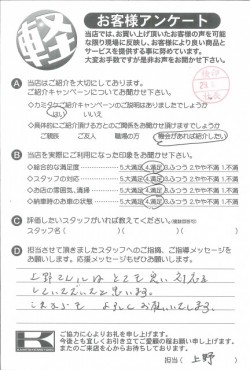 軽
お客様アンケート
当店では、お買い上げ頂いたお客様の声を可能
な限り現場に反映し、お客様により良い商品と
サービスを提供する事に努めています。
大変お手数ですが是非お声をお聞かせ下さい。
A 当店はご紹介を大切にしております。
ご紹介キャンペーンについてお聞かせ下さい。
◇カミタはご紹介キャンペーンのご説明はありましたでしょうか
はい いいえ
◇具体的にご紹介頂ける方とのご関係をお聞かせ頂けますでしょうか
ご親戚 ご友人 職場の方 機会があれば紹介したい
B 当店を実際にご利用になった印象をお聞かせ下さい。
◇総合的な満足度 5.大満足 4.満足 3.ふつう 2.やや不満 1.不満
◇スタッフの対応 5.大満足 4.満足 3.ふつう 2.やや不満 1.不満
◇お店の雰囲気、清掃 5.大満足 4.満足 3.ふつう 2.やや不満 1.不満
◇納車時のお車の状態 5.大満足 4.満足 3.ふつう 2.やや不満 1.不満
C 評価したいスタッフがいれば教えてください。(複数回答可)
スタッフ名( )( )( )
D 担当させて頂きましたスタッフへのご指摘、ご指導メッセージを
お願いします。応援メッセージもぜひお願いします。
上野さんにはとても良い対応を
していただいたと思います。
これからもよろしくお願いいたします。
K
ご協力に心よりお礼を申し上げます。
今後とも宜しくお引き立てご愛顧の程お願い申し上げます。
またのご来店を心からお待ちしております。
担当( 上野 )